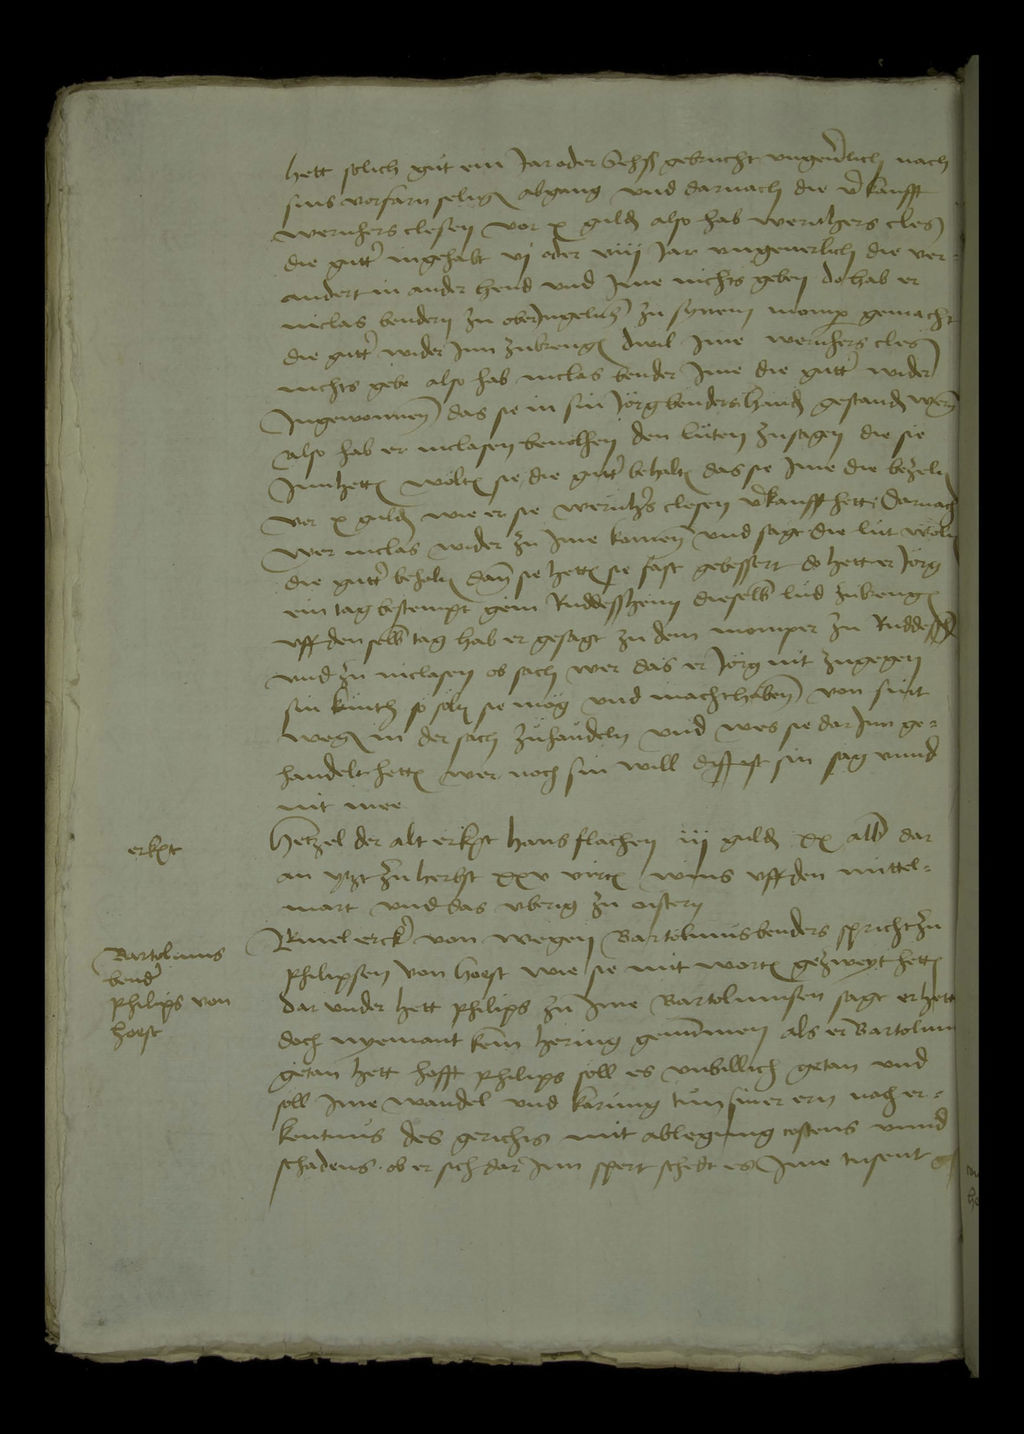 hett solich gut ein Jar oder sehß gebrucht ungeverlich nach
sins vorfarn selig abgang und darnach die v'kaufft
wernhers clesen vor x guld also hab wernhers cles
die gutt' ingehabt vj oder viij Jar ungeuerlich die ver-
andert in ander hend und Ime nichts geben do hab er
niclas bendern zu oberIngelnh' zu synem momp gemacht
die gutt' wider Inn zubreng dwil Ime wernhers cles
nichts gebe also hab niclas bender Ime die gutt' wider
Ingewonnen das sie in sin Jorg benders hand gestand wern
also hab er niclasen beuolhen den luten zusagen die sie
Innhett wolt sie die gutt' behalt das sie Ime die bezeln
vor x guld wie er sie wernh's clesen v'kaufft hett Darnach
wer niclas wider zu Ime komen und sagt die lut woln
die gutt' behaln dan sie hett sie fast gebessert do hett er Jorg
ein tag bestempt gein Ruddeßheim dieselb lud zubreng
uff denselb tag hab er gesagt zu dem momper zu Ruddeßh'
und zu niclasen ob sach wer das er Jorg nit zugegen
sin kunth so soln sie mog und macht haben von sint
weg in der sach zuhandeln und wes sie dar Inn ge-
handelt hett wer noch sin will diß ist sin sag unnd
nit mee
erkt
Hetzel der alt erkt hans flachen iij guld xx alb dar
an ytzt zu herbst xxv virt wins uff den mittel-
mart und das uberig zu ostern
Bartolmus
bend'
philips von
hoest
Rmel erck' von wegen Bartolmus benders spricht zu
philipsen von hoest wie sie mit wort gezweyt hett
dar under hett philips zu Ime Bartolmusen sagt er hett
doch nyemant kein hering genummen als er Bartolmus
getan hett hofft philips soll es unbillich getan und
soll Ime wandel und karung tun siner ern nach er-
kentnus des gerichts mit ablegung costens unnd
schadens. ob er sich dar Inn spert schedt es Ime tusent